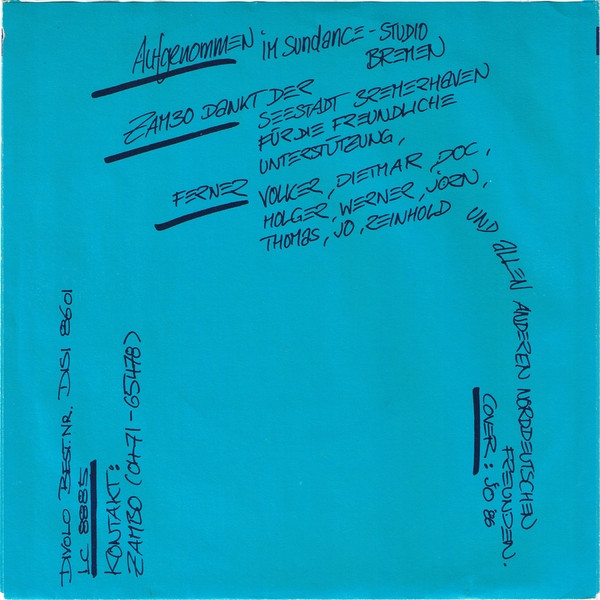 Aufgenommen im Sundance-Studio
Bremen
Zambo dankt der
Seestadt Bremerhaven
für die freundliche
Unterstützung,
Ferner Volker, Dietmar, Doc,
Holger, Werner, Jörn,
Thomas, Jo, Reinhold
und allen anderen norddeutschen
Freunden.
Cover: Jo 86
Divolo Best.Nr. DISI 8601
LC 8885
Kontakt:
Zambo (0471-65478)